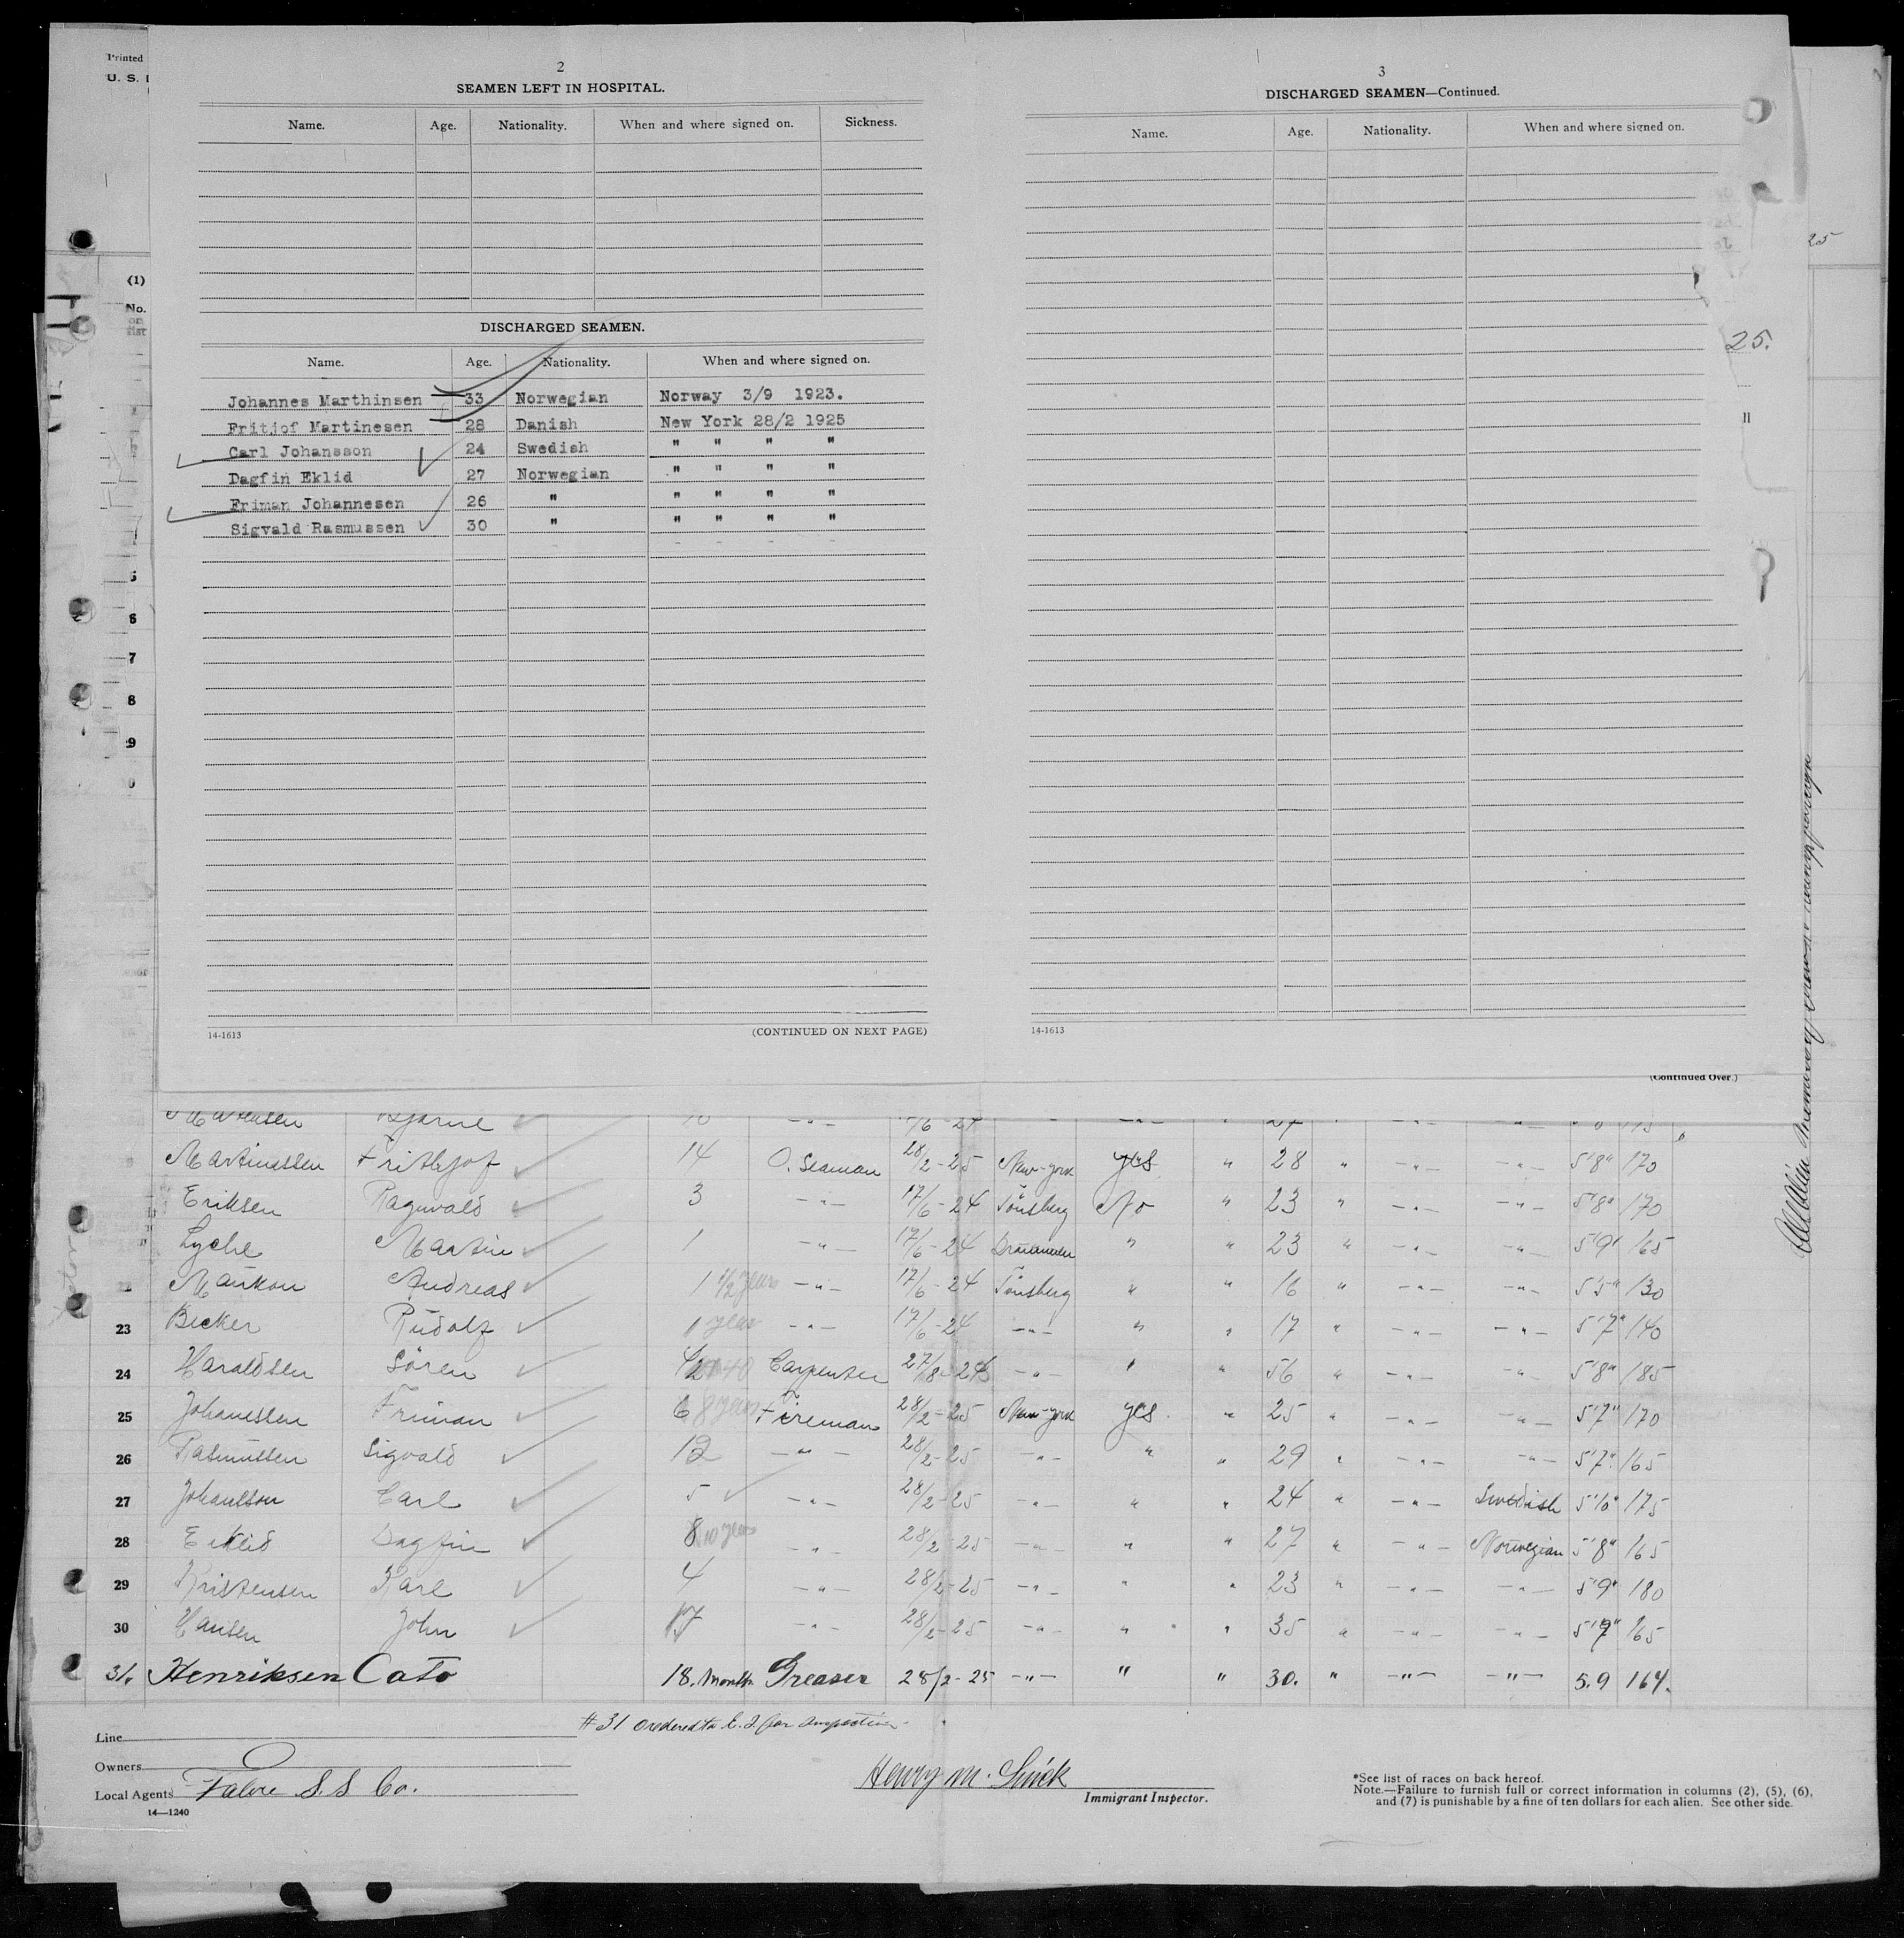 Printed
U. S.
2
SEAMEN LEFT IN HOSPITAL.
Name. Age. Nationality. When and where signed on. Sickness.
DISCHARGED SEAMEN.
Name. Age. Nationality. When and where signed on.
Johannes Marthinsen 33 Norwegian Norway 3/9 1923.
Fritjof Martinesen 28 Danish New York 28/2 1925
Carl Johansson 24 Swedish " " " "
Dagfin Eklid 27 Norwegian " " " "
Friman Johannesen 26 " " " " "
Sigvald Rasmussen 30 " " " " "
14-1613 (CONTINUED ON NEXT PAGE)
3
DISCHARGED SEAMEN—Continued.
Name. Age. Nationality. When and where signed on.
14-1613
(Continued Over.)
25
25.
(1)
No.
on
list
5
6
7
8
9
Bjarne
Martinssen Frithjof 14 O. Seaman 28/2-25 New-york yes " 28 " -"- -"- 5'8" 170
Eriksen Ragnvald 3 -"- 17/6-24 Tönsberg No " 23 " -"- -"- 5'8" 170
Lyche Martin 1 -"- 17/6-24 " " 23 " -"- -"- 5'9" 165
Andreas 1 1/2 years -"- 17/6-24 Tönsberg " " 16 " -"- -"- 5'5" 130
23 Becker Rudolf 1 year -"- 17/6-24 -"- " " 17 " -"- -"- 5'7" 140
24 Haraldsen Sören Carpenter 27/8-24 -"- " " 56 " -"- -"- 5'8" 185
25 Johanessen Friman 6 8 years Fireman 28/2-25 New-york yes " 25 " -"- -"- 5'7" 170
26 Rasmussen Sigvald 12 -"- 28/2-25 -"- " " 29 " -"- -"- 5'7" 165
27 Johansson Carl 5 -"- 28/2-25 -"- " " 24 " -"- Swedish 5'10" 175
28 Eklid Dagfin 8 10 years -"- 28/2-25 -"- " " 27 " -"- Norwegian 5'8" 165
29 Kristensen Karl 4 -"- 28/2-25 -"- " " 23 " -"- -"- 5'9" 180
30 Hansen John 17 -"- 28/2-25 -"- " " 35 " -"- -"- 5'9" 165
31. Henriksen Cato 18. Months Greaser 28/2-25 -"- " " 30. " -"- -"- 5.9 164.
#31 ordered to E. I. for inspection
Line
Owners
Local Agents Fabre S. S Co.
14—1240
Henry M.
Immigrant Inspector.
*See list of races on back hereof.
Note.—Failure to furnish full or correct information in columns (2), (5), (6),
and (7) is punishable by a fine of ten dollars for each alien. See other side.